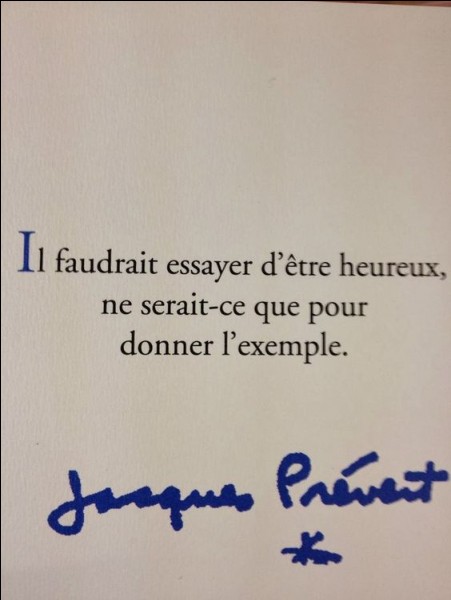 Il faudrait essayer d’être heureux,
ne serait-ce que pour
donner l’exemple.
Jacques Prévert